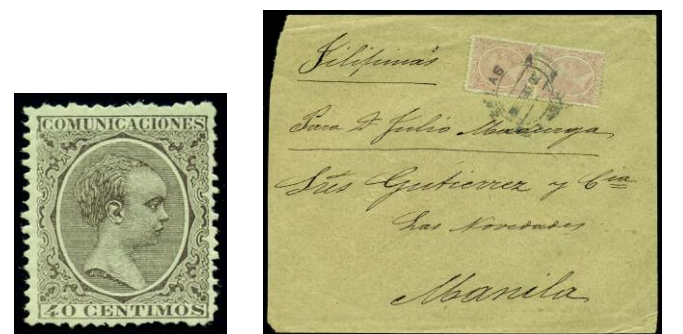 COMUNICACIONES
40 CENTIMOS
Filipinas
Para Dn Julio
Sres Gutierrez y Cia
Las Novedades
Manila